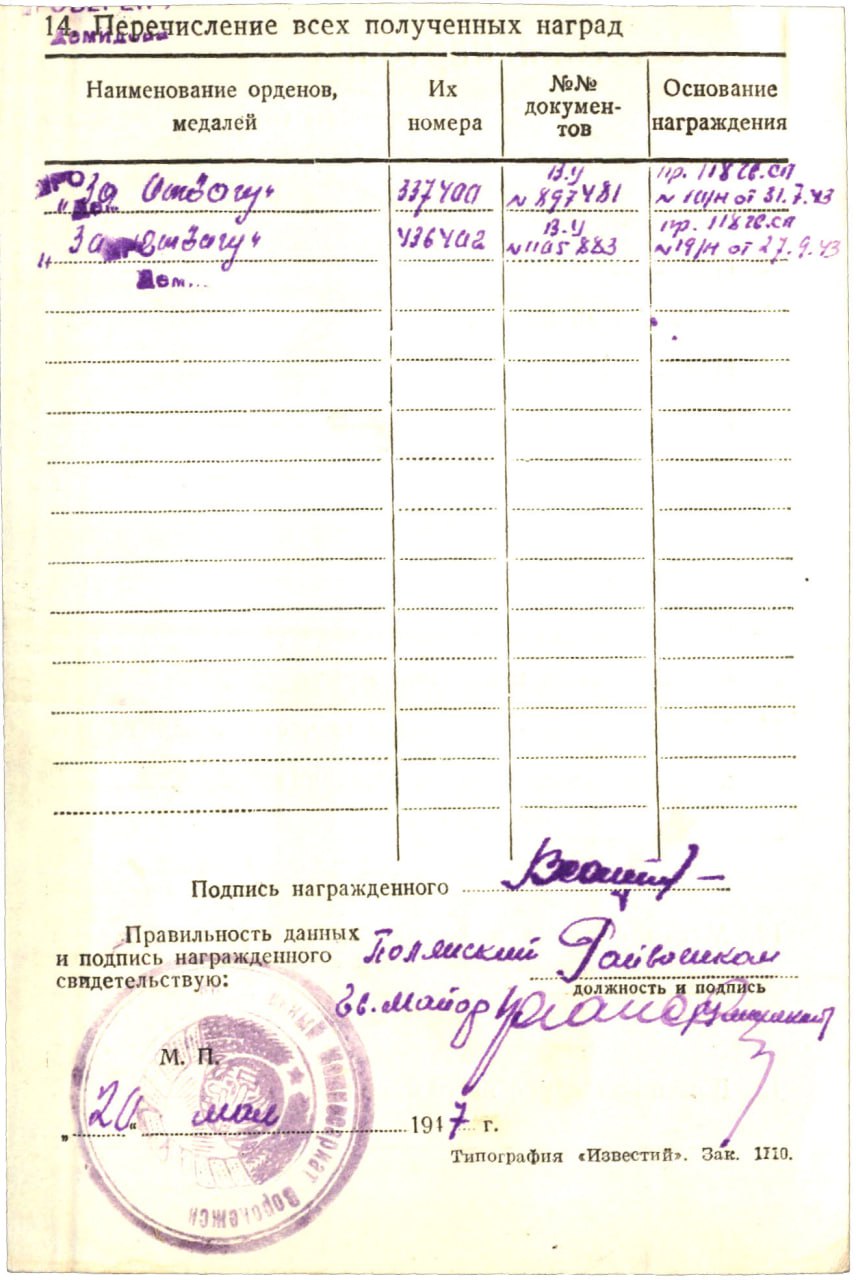 14. Перечисление всех полученных наград
Наименование орденов, медалей
Их номера
№№ документов
Основание награждения
"За Отвагу" 337400 В.У № 897481 пр. 118 гв.сп № 10/н от 31.7.43
"За Отвагу" 436402 В.У № 1105883 пр. 118 гв.сп № 19/н от 27.9.43
Подпись награжденного
Правильность данных
и подпись награжденного
свидетельствую:
Полянский Райвоенком
должность и подпись
Гв. Майор
М. П.
„20“ мая 1947 г.
Типография «Известий». Зак. 1110.